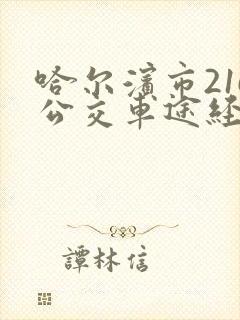 哈尔滨市216
公交车途经
譚林信